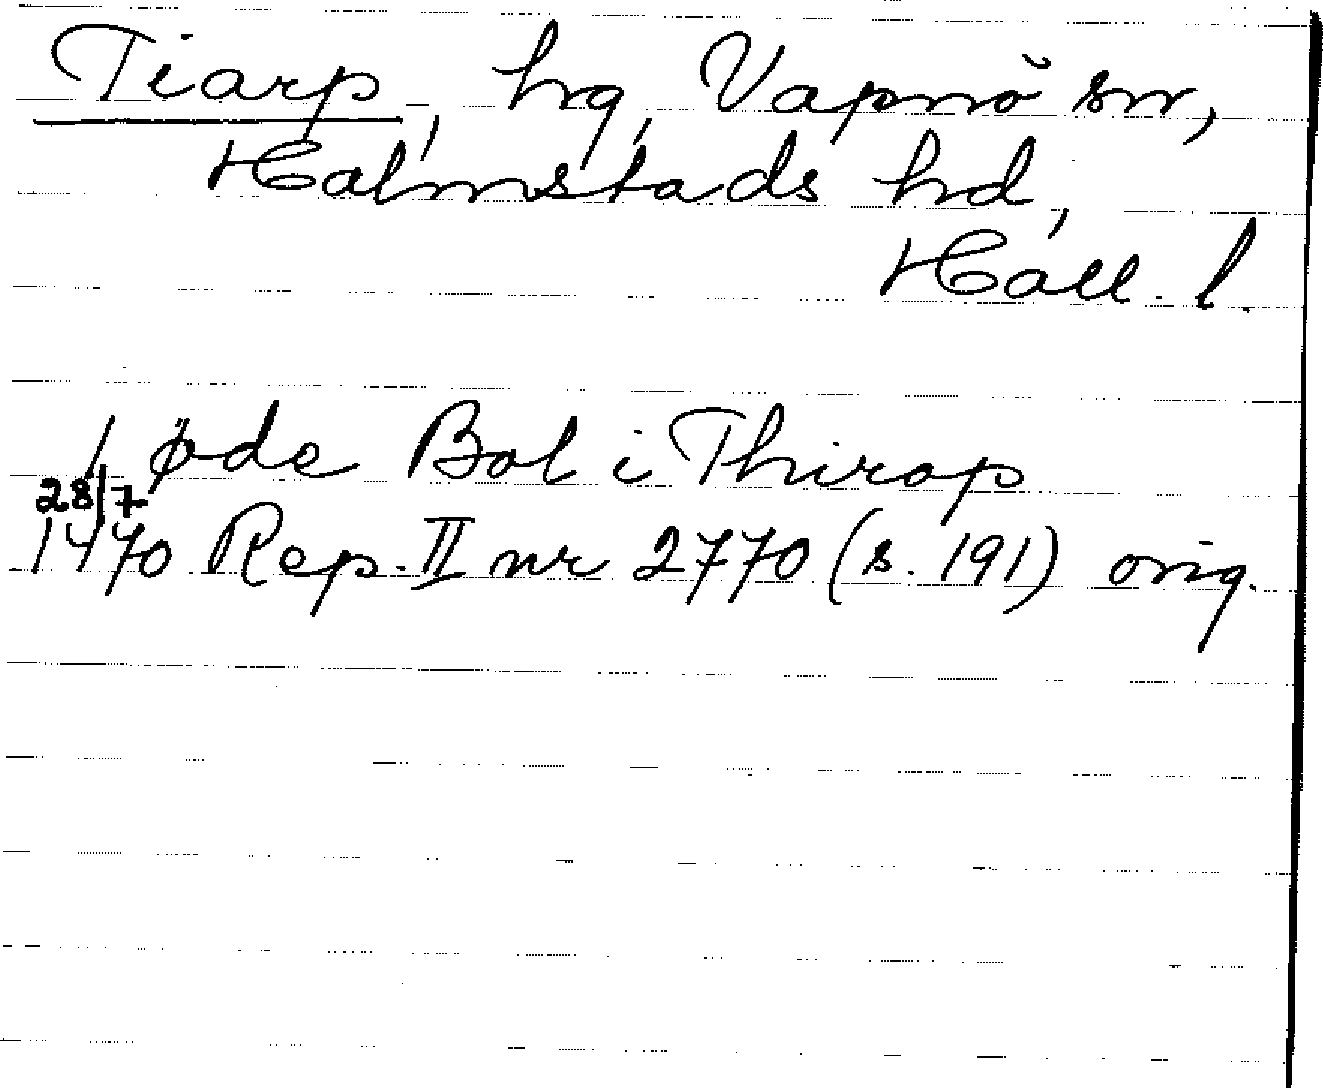 Tiarp, hg, Vapnö sn,
Halmstads hd,
Hall. l.
1 øde Bol i Thirop
28/7
1470 Rep. II nr 2770 (s. 191) orig.